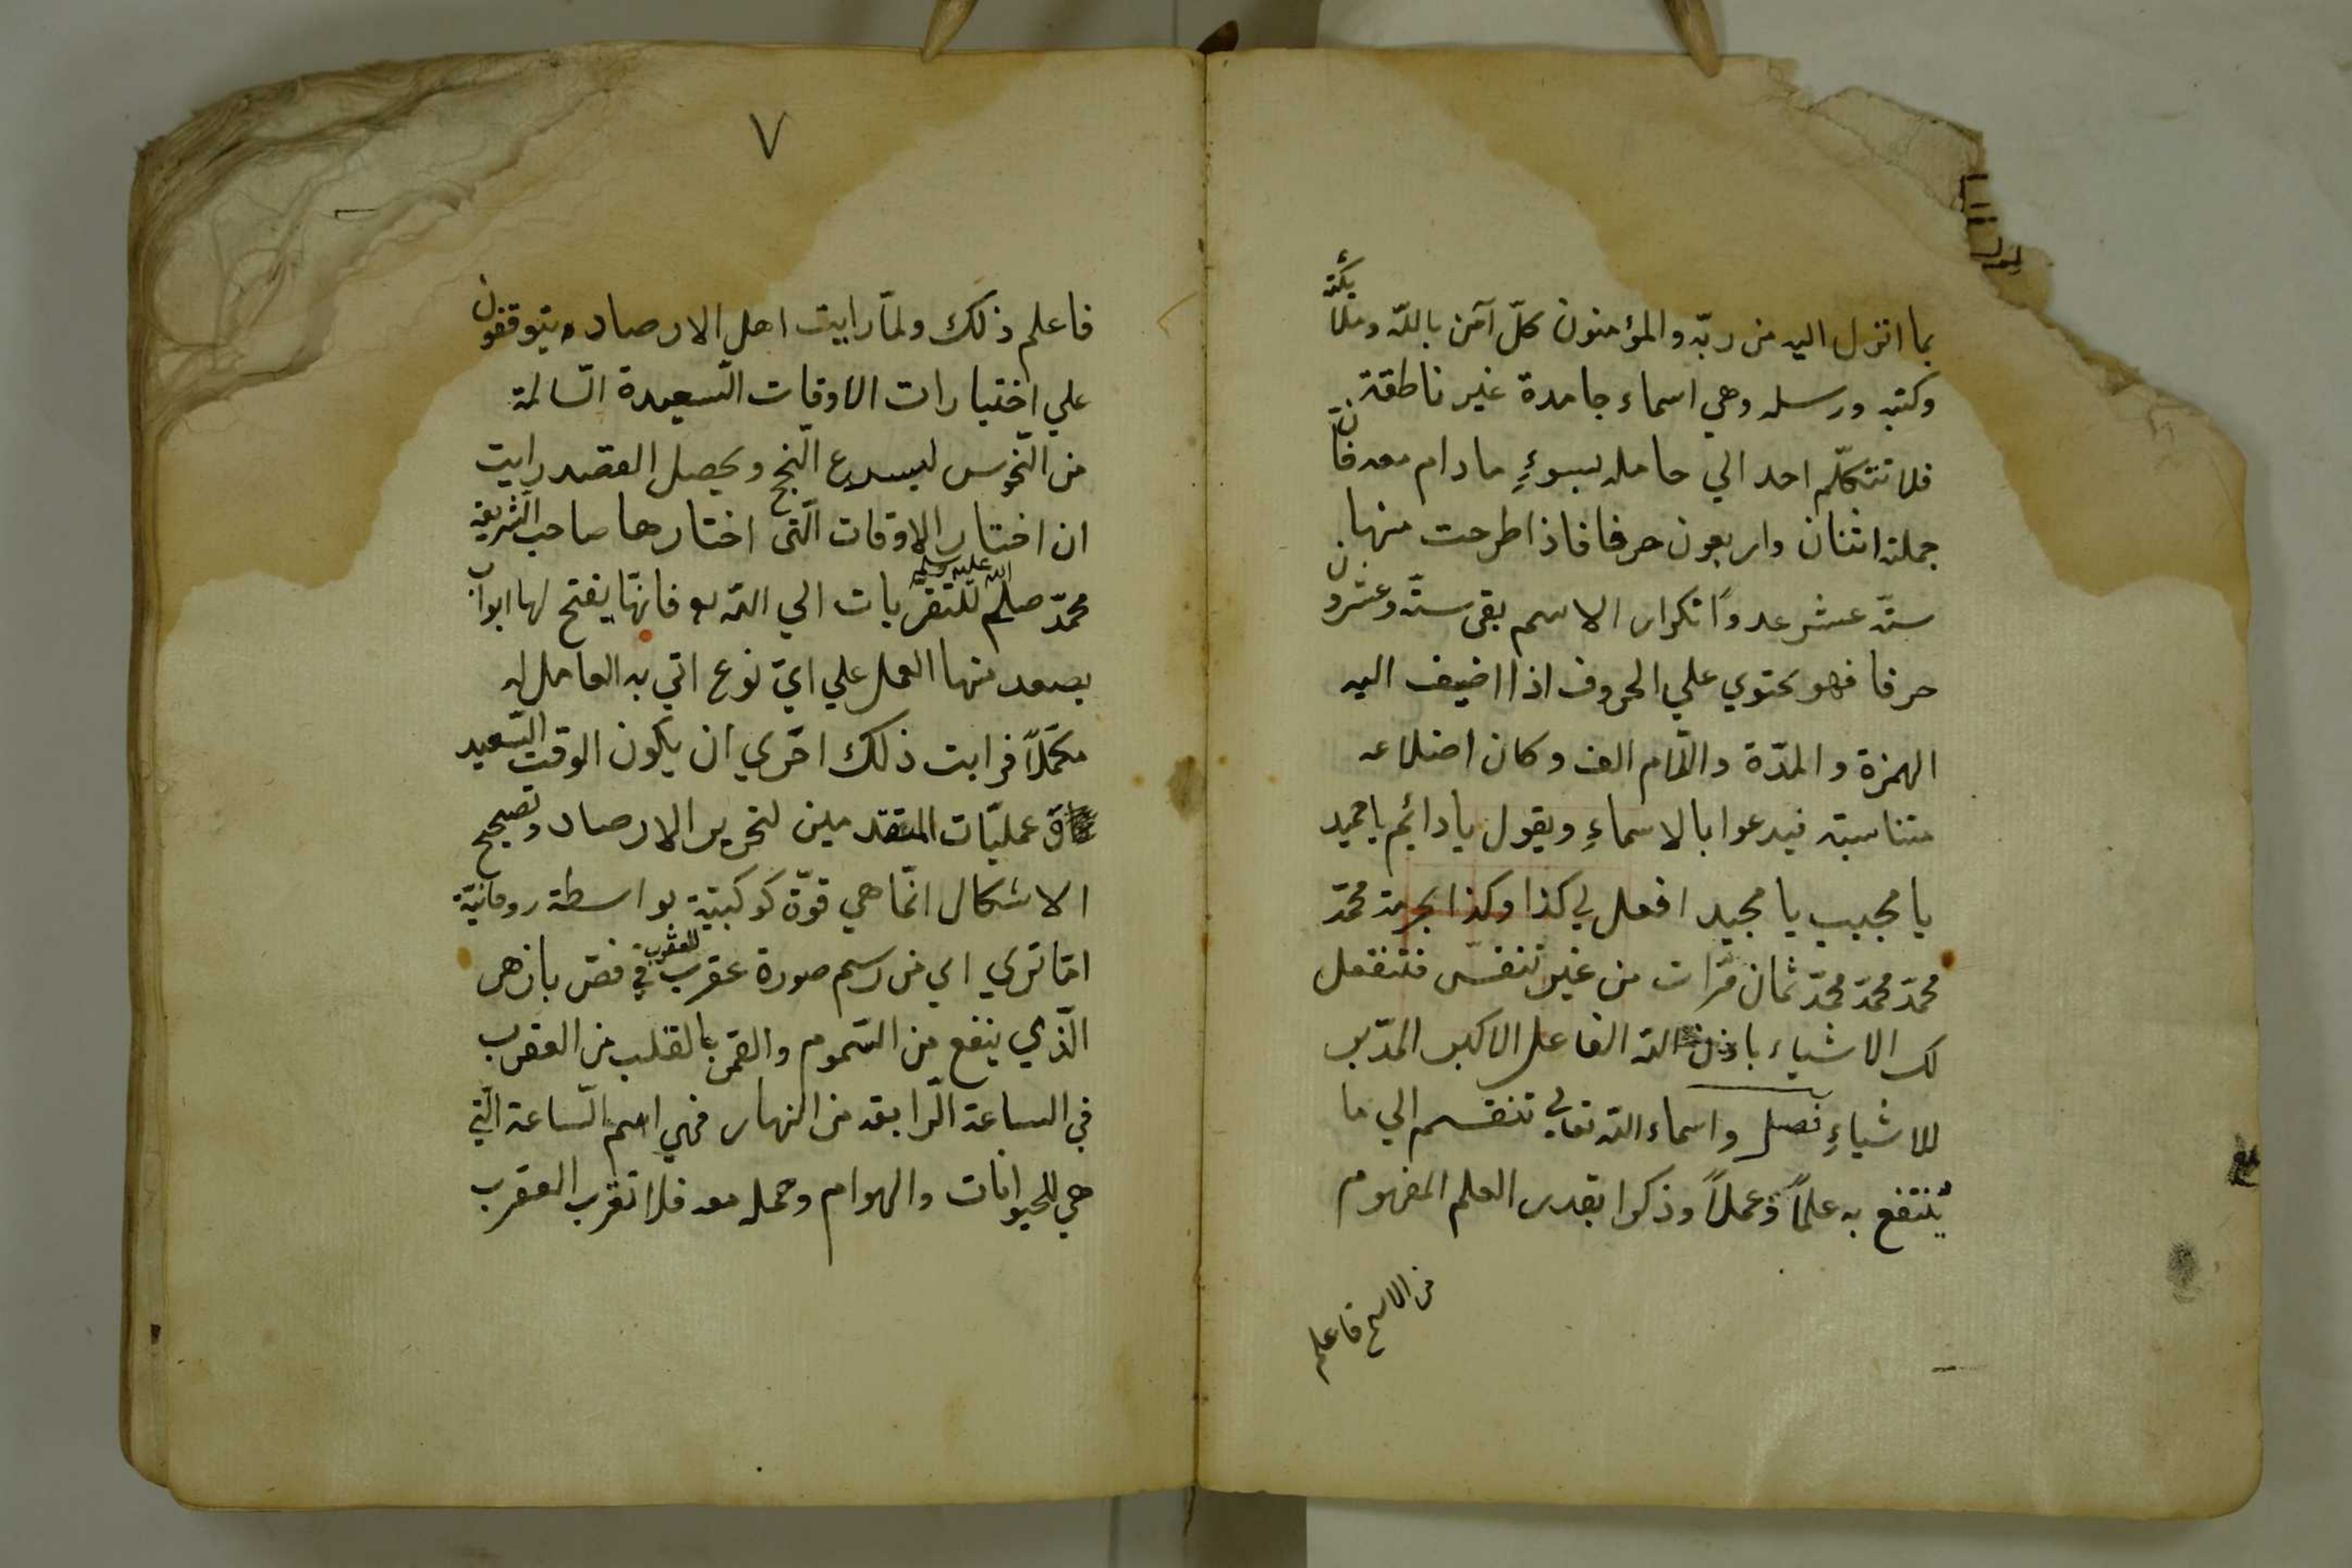 بما انزل اليه من ربّه والمؤمنون كلّ آمن باللّه وملائكته
وكتبه ورسله وهي اسماء جامدة غير ناطقة
فلا تتكلّم احد الي حامله بسوءٍ مادام معه فانّ
جملته اثنان واربعون حرفا فاذا طرحت منها
ستّه عشر عددًا تكرار الاسم بقى ستّه وعشرون
حرفا فهو يحتوي علي الحروف اذا اضيف اليه
الهمزة والمدّة واللّام الف وكان اضلاعه
متناسبته فيدعوا بالاسماءِ ويقول يا دائم يا حميد
يا مجيب يا مجيد افعل لي كذا وكذا بحرمة محمّد
محمّد محمّد محمّد ثمان مرّات من غير تنفّس فتنفعل
لك الاشياء باذن اللّه الفاعل الاكبر المدّبر
للاشياءِ فصل واسماء اللّه تعالي تنقسم الي ما
ينتفع به علمًا وعملًا وذكرا بقدر العلم المفهوم
من الاسم فاعلم
٧
فاعلم ذلك ولمّا رايت اهل الارصاد يتوقفون
علي اختيارات الاوقات السّعيدة السّالمة
من النّحوس ليسرع النّجح ويحصل القصد رايت
ان اختار الاوقات الّتى اختارها صاحب الشّريعة
محمّد صلم اللّه عليه وسلم للتقرّبات الي اللّه فانّها يفتح لها ابواب
يصعد منها العمل علي ايّ نوع اتي به العامل له
مكمّلًا فرايت ذلك احري ان يكون الوقت السّعيد
عمليّات المتقدمين لتحرير الارصاد وتصحيح
الاشكال انّما هي قوّة كوكبيّة بواسطة روحانيّة
امّا تري الي من رسم صورة عقرب للعقرب في فصّ بازهر
الّذي ينفع من السّموم والقمر بالقلب من العقرب
في الساعة الرّابعة من النهار فهي اسم السّاعة الّتي
هي للحيوانات والهوام وحمله معه فلا تقرب العقرب